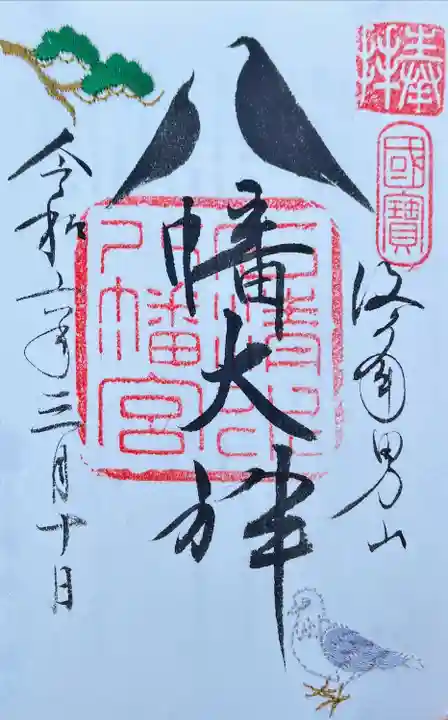 奉拝
國寶
鳩ヶ峯男山
八幡大神
石清水八幡宮
令和年三月十日